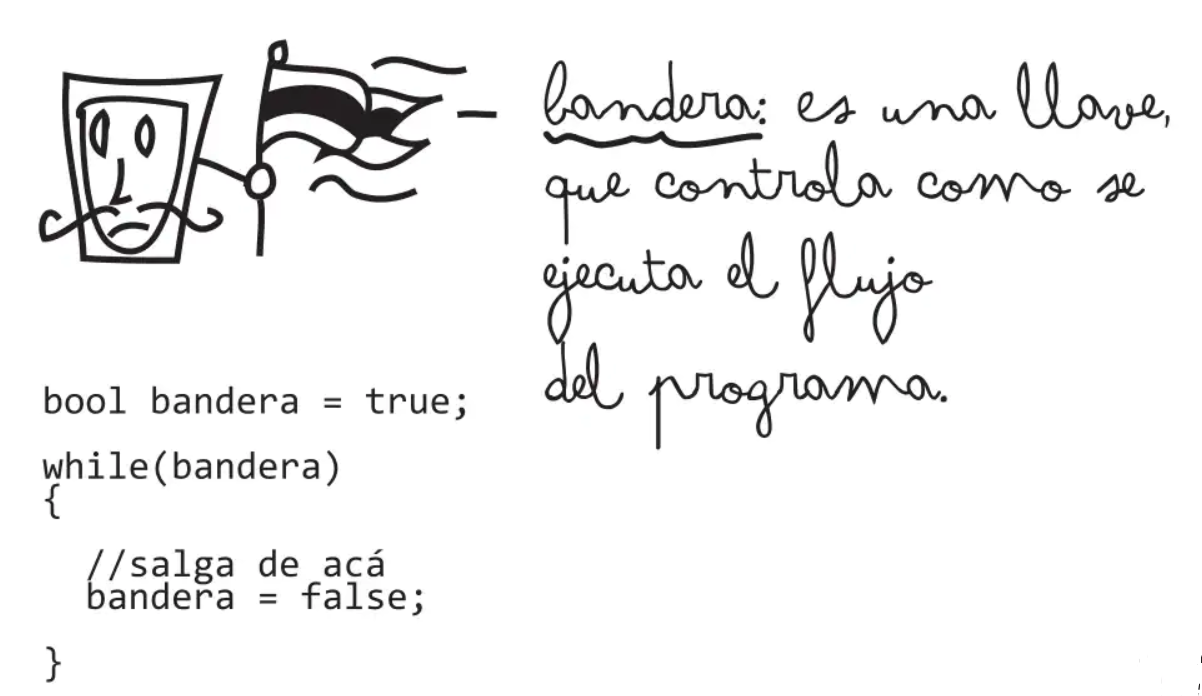 bandera: es una llave,
que controla como se
ejecuta el flujo
del programa.
bool bandera = true;
while(bandera)
{
//salga de acá
bandera = false;
}